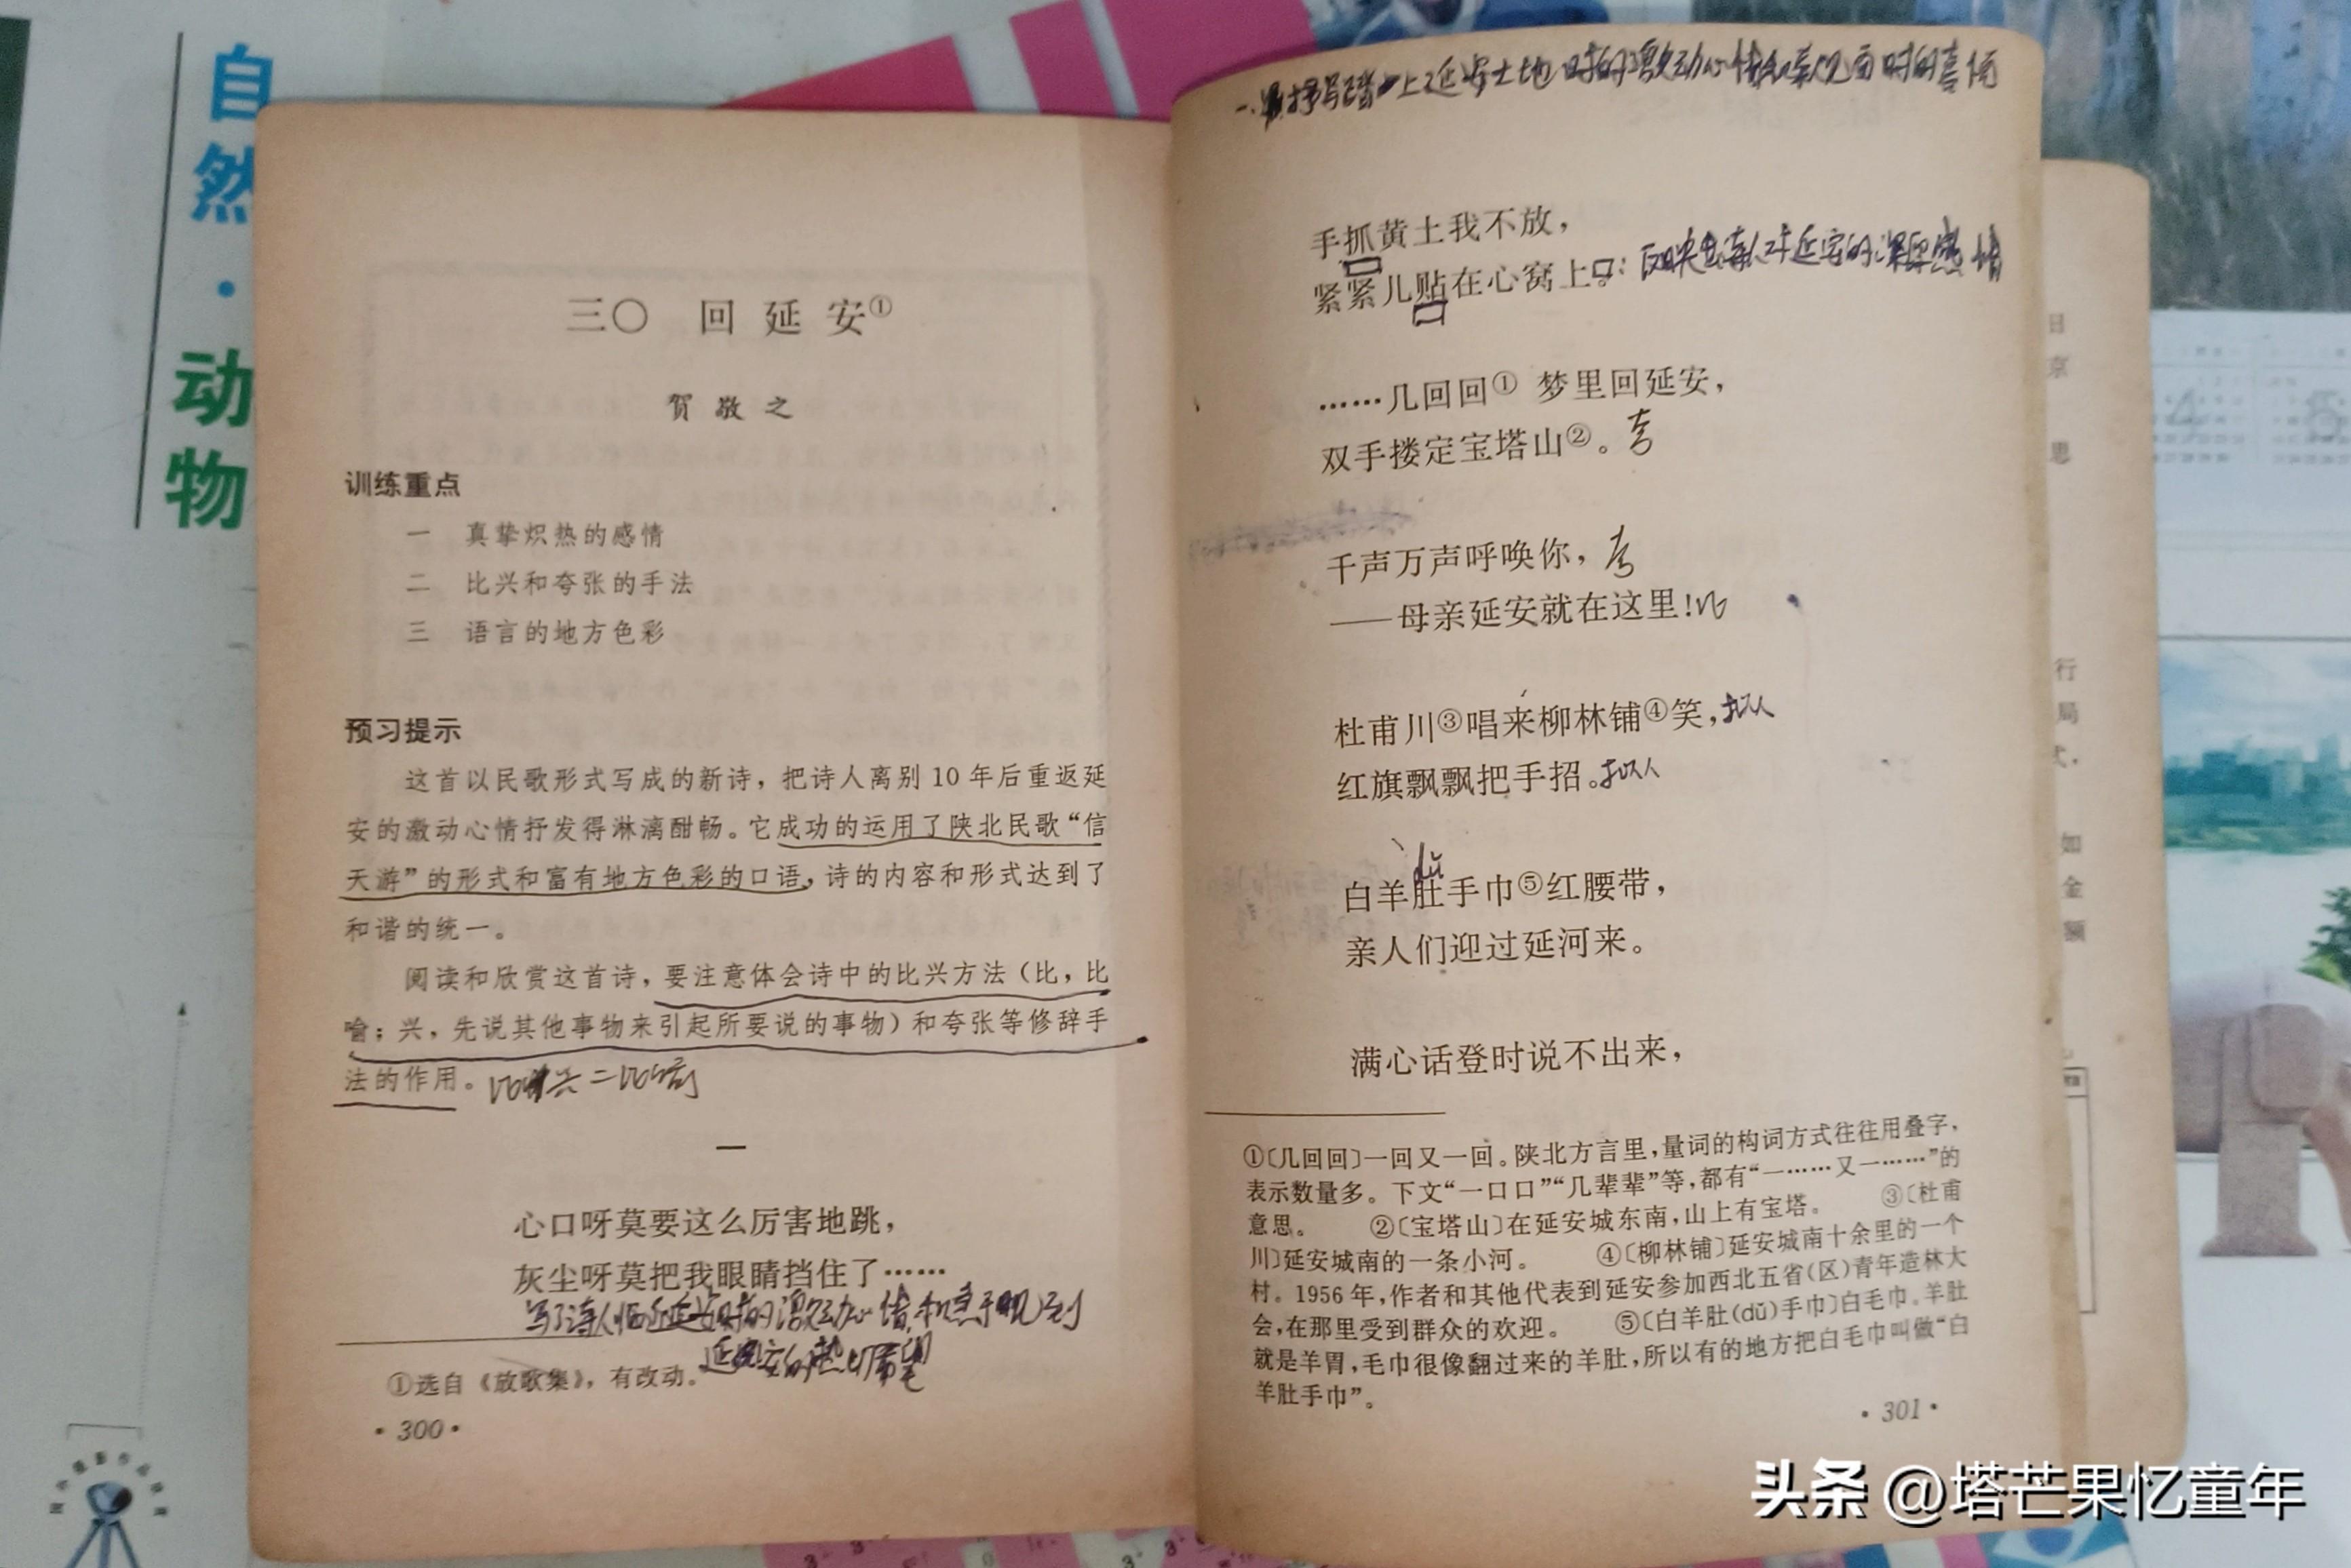 自然·动物
三〇 回延安①
贺敬之
训练重点
一 真挚炽热的感情
二 比兴和夸张的手法
三 语言的地方色彩
预习提示
这首以民歌形式写成的新诗，把诗人离别10年后重返延
安的激动心情抒发得淋漓酣畅。它成功的运用了陕北民歌“信
天游”的形式和富有地方色彩的口语，诗的内容和形式达到了
和谐的统一。
阅读和欣赏这首诗，要注意体会诗中的比兴方法（比，比
喻；兴，先说其他事物来引起所要说的事物）和夸张等修辞手
法的作用。
一
心口呀莫要这么厉害地跳，
灰尘呀莫把我眼睛挡住了……
写了诗人临近延安时的激动心情和焦手眼到
延安的热切希望
①选自《放歌集》，有改动。
·300·
抒写踏上延安土地时的激动心情和亲人见面时的喜悦
手抓黄土我不放，
紧紧儿贴在心窝上。：反映出亲人对延安的深厚感情
……几回回①梦里回延安，
双手搂定宝塔山②。夸
千声万声呼唤你，夸
——母亲延安就在这里！比
杜甫川③唱来柳林铺④笑，拟人
红旗飘飘把手招。拟人
dǔ
白羊肚手巾⑤红腰带，
亲人们迎过延河来。
满心话登时说不出来，
①〔几回回〕一回又一回。陕北方言里，量词的构词方式往往用叠字，
表示数量多。下文“一口口”“几辈辈”等，都有“一……又一……”的
意思。 ②〔宝塔山〕在延安城东南，山上有宝塔。 ③〔杜甫
川〕延安城南的一条小河。 ④〔柳林铺〕延安城南十余里的一个
村。1956年，作者和其他代表到延安参加西北五省（区）青年造林大
会，在那里受到群众的欢迎。 ⑤〔白羊肚（dǔ）手巾〕白毛巾。羊肚
就是羊胃，毛巾很像翻过来的羊肚，所以有的地方把白毛巾叫做“白
羊肚手巾”。
·301·
日
京
思
行
局
式，
如
金
额
头条 @塔芒果忆童年